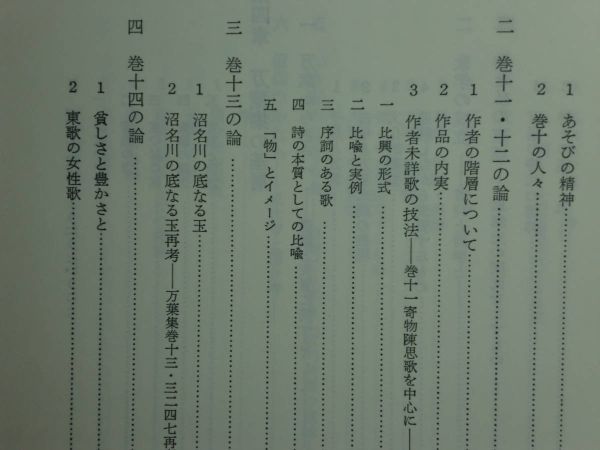 1 あそびの精神
2 巻十の人々
二 巻十一・十二の論
1 作者の階層について
2 作品の内実
3 作者未詳歌の技法――巻十一寄物陳思歌を中心に――
一 比興の形式
二 比喩と実例
三 序詞のある歌
四 詩の本質としての比喩
五 「物」とイメージ
三 巻十三の論
1 沼名川の底なる玉
2 沼名川の底なる玉再考――万葉集巻十三・三二四七再
四 巻十四の論
1 貧しさと豊かさと
2 東歌の女性歌